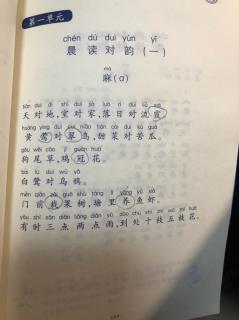 第一单元
chén dú duì yùn yī
晨读对韵(一)
má
麻(ɑ)
tiān duì dì shì duì jiā luò rì duì liú xiá
天对地,室对家,落日对流霞。
huáng yīng duì cuì niǎo tián cài duì kǔ guā
黄莺对翠鸟,甜菜对苦瓜。
gǒu wěi cǎo jī guān huā
狗尾草,鸡冠花。
bái lù duì wū yā
白鹭对乌鸦。
mén qián zāi guǒ shù táng lǐ yǎng yú xiā
门前栽果树,塘里养鱼虾。
yǒu shí sān diǎn liǎng diǎn yǔ dào chù shí zhī wǔ zhī huā
有时三点两点雨,到处十枝五枝花。